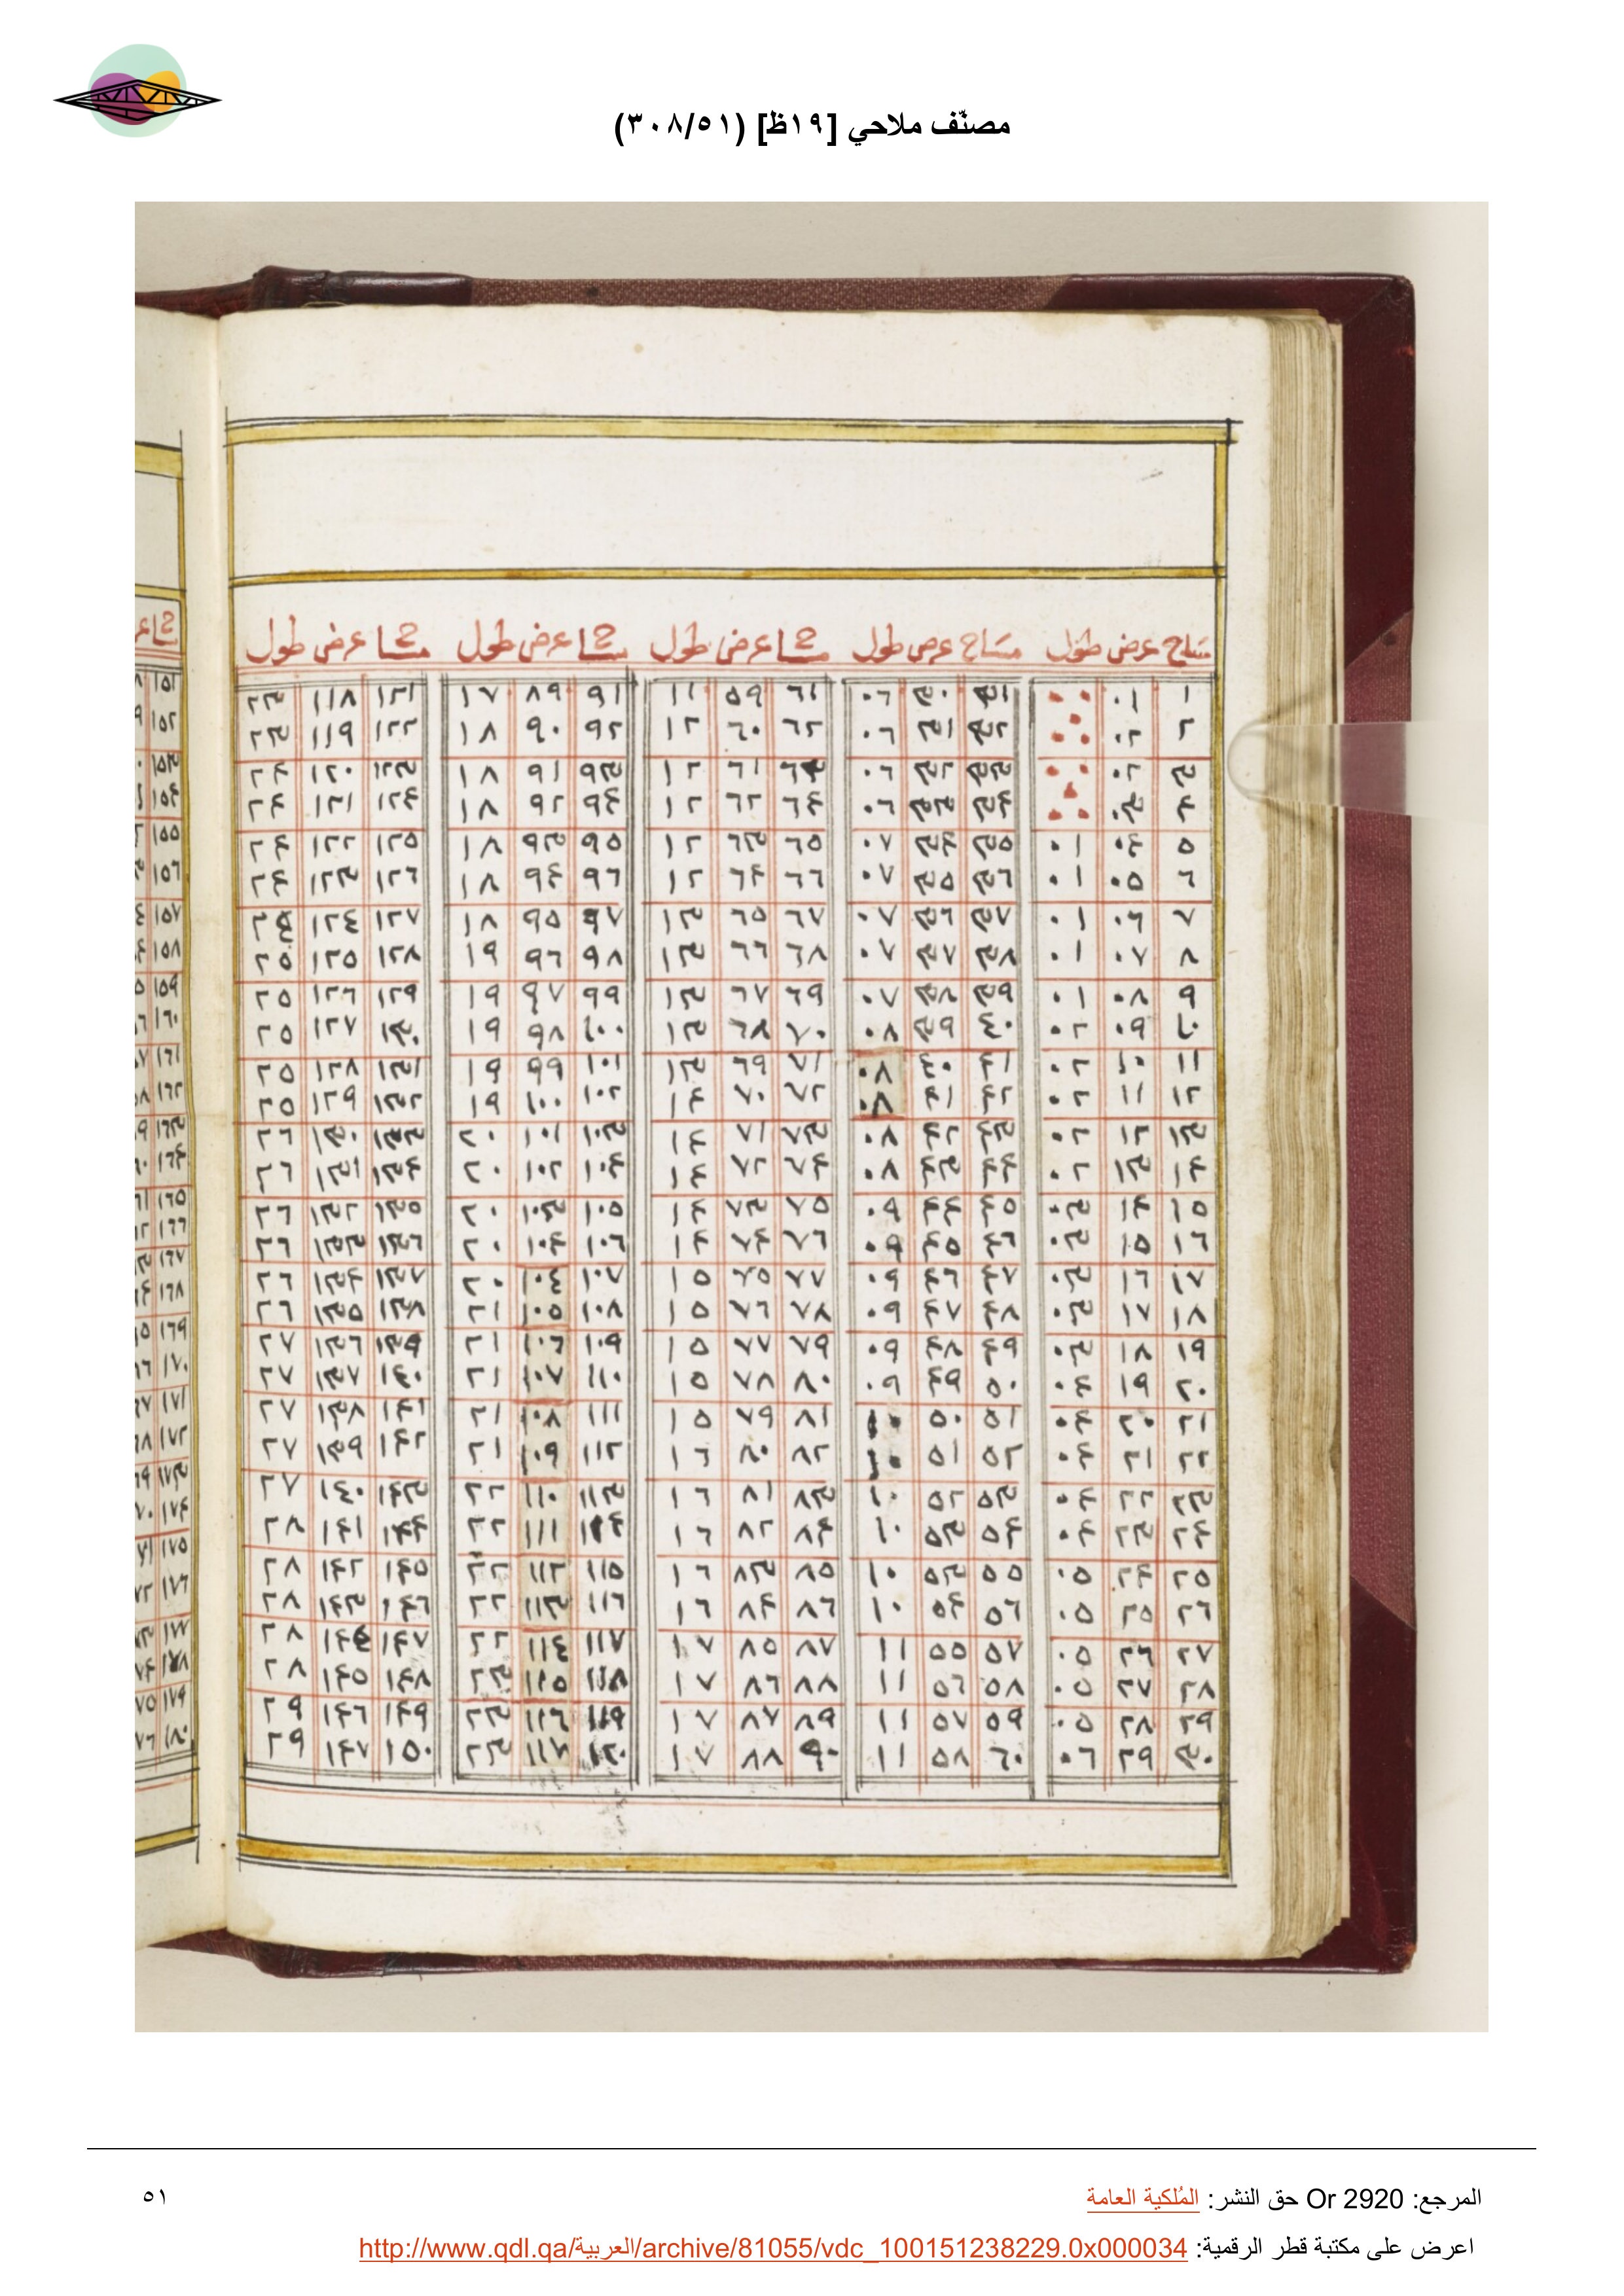 مصنّف ملاحي [١٩ظ] (٣٠٨/٥١)
مساح عرض طول مساح عرض طول مسا عرض طول مسا عرض طول مسا عرض طول
١ ٠١ ٠٠ ٣١ ٣٠ ٠٦ ٦١ ٥٩ ١١ ٩١ ٨٩ ١٧ ١٢١ ١١٨ ٢٣
٢ ٠٢ ٠٠ ٣٢ ٣١ ٠٦ ٦٢ ٦٠ ١٢ ٩٢ ٩٠ ١٨ ١٢٢ ١١٩ ٢٣
٣ ٠٢ ٠٠ ٣٣ ٣٢ ٠٦ ٦٣ ٦١ ١٢ ٩٣ ٩١ ١٨ ١٢٣ ١٢٠ ٢٤
٤ ٠٣ ٠٠ ٣٤ ٣٣ ٠٦ ٦٤ ٦٢ ١٢ ٩٤ ٩٢ ١٨ ١٢٤ ١٢١ ٢٤
٥ ٠٤ ٠١ ٣٥ ٣٤ ٠٧ ٦٥ ٦٣ ١٢ ٩٥ ٩٣ ١٨ ١٢٥ ١٢٢ ٢٤
٦ ٠٥ ٠١ ٣٦ ٣٥ ٠٧ ٦٦ ٦٤ ١٢ ٩٦ ٩٤ ١٨ ١٢٦ ١٢٣ ٢٤
٧ ٠٦ ٠١ ٣٧ ٣٦ ٠٧ ٦٧ ٦٥ ١٣ ٩٧ ٩٥ ١٨ ١٢٧ ١٢٤ ٢٤
٨ ٠٧ ٠١ ٣٨ ٣٧ ٠٧ ٦٨ ٦٦ ١٣ ٩٨ ٩٦ ١٩ ١٢٨ ١٢٥ ٢٥
٩ ٠٨ ٠١ ٣٩ ٣٨ ٠٧ ٦٩ ٦٧ ١٣ ٩٩ ٩٧ ١٩ ١٢٩ ١٢٦ ٢٥
١٠ ٠٩ ٠٢ ٤٠ ٣٩ ٠٨ ٧٠ ٦٨ ١٣ ١٠٠ ٩٨ ١٩ ١٣٠ ١٢٧ ٢٥
١١ ١٠ ٠٢ ٤١ ٤٠ ٠٨ ٧١ ٦٩ ١٣ ١٠١ ٩٩ ١٩ ١٣١ ١٢٨ ٢٥
١٢ ١١ ٠٢ ٤٢ ٤١ ٠٨ ٧٢ ٧٠ ١٤ ١٠٢ ١٠٠ ١٩ ١٣٢ ١٢٩ ٢٥
١٣ ١٢ ٠٢ ٤٣ ٤٢ ٠٨ ٧٣ ٧١ ١٤ ١٠٣ ١٠١ ٢٠ ١٣٣ ١٣٠ ٢٦
١٤ ١٣ ٠٢ ٤٤ ٤٣ ٠٨ ٧٤ ٧٢ ١٤ ١٠٤ ١٠٢ ٢٠ ١٣٤ ١٣١ ٢٦
١٥ ١٤ ٠٣ ٤٥ ٤٤ ٠٩ ٧٥ ٧٣ ١٤ ١٠٥ ١٠٣ ٢٠ ١٣٥ ١٣٢ ٢٦
١٦ ١٥ ٠٣ ٤٦ ٤٥ ٠٩ ٧٦ ٧٤ ١٤ ١٠٦ ١٠٤ ٢٠ ١٣٦ ١٣٣ ٢٦
١٧ ١٦ ٠٣ ٤٧ ٤٦ ٠٩ ٧٧ ٧٥ ١٥ ١٠٧ ١٠٤ ٢٠ ١٣٧ ١٣٤ ٢٦
١٨ ١٧ ٠٣ ٤٨ ٤٧ ٠٩ ٧٨ ٧٦ ١٥ ١٠٨ ١٠٥ ٢١ ١٣٨ ١٣٥ ٢٦
١٩ ١٨ ٠٣ ٤٩ ٤٨ ٠٩ ٧٩ ٧٧ ١٥ ١٠٩ ١٠٦ ٢١ ١٣٩ ١٣٦ ٢٧
٢٠ ١٩ ٠٤ ٥٠ ٤٩ ٠٩ ٨٠ ٧٨ ١٥ ١١٠ ١٠٧ ٢١ ١٤٠ ١٣٧ ٢٧
٢١ ٢٠ ٠٤ ٥١ ٥٠ ١٠ ٨١ ٧٩ ١٥ ١١١ ١٠٨ ٢١ ١٤١ ١٣٨ ٢٧
٢٢ ٢١ ٠٤ ٥٢ ٥١ ١٠ ٨٢ ٨٠ ١٦ ١١٢ ١٠٩ ٢١ ١٤٢ ١٣٩ ٢٧
٢٣ ٢٢ ٠٤ ٥٣ ٥٢ ١٠ ٨٣ ٨١ ١٦ ١١٣ ١١٠ ٢٢ ١٤٣ ١٤٠ ٢٧
٢٤ ٢٣ ٠٤ ٥٤ ٥٣ ١٠ ٨٤ ٨٢ ١٦ ١١٤ ١١١ ٢٢ ١٤٤ ١٤١ ٢٨
٢٥ ٢٤ ٠٥ ٥٥ ٥٣ ١٠ ٨٥ ٨٣ ١٦ ١١٥ ١١٢ ٢٢ ١٤٥ ١٤٢ ٢٨
٢٦ ٢٥ ٠٥ ٥٦ ٥٤ ١٠ ٨٦ ٨٤ ١٦ ١١٦ ١١٣ ٢٢ ١٤٦ ١٤٣ ٢٨
٢٧ ٢٦ ٠٥ ٥٧ ٥٥ ١١ ٨٧ ٨٥ ١٧ ١١٧ ١١٤ ٢٢ ١٤٧ ١٤٤ ٢٨
٢٨ ٢٧ ٠٥ ٥٨ ٥٦ ١١ ٨٨ ٨٦ ١٧ ١١٨ ١١٥ ٢٣ ١٤٨ ١٤٥ ٢٨
٢٩ ٢٨ ٠٥ ٥٩ ٥٧ ١١ ٨٩ ٨٧ ١٧ ١١٩ ١١٦ ٢٣ ١٤٩ ١٤٦ ٢٩
٣٠ ٢٩ ٠٦ ٦٠ ٥٨ ١١ ٩٠ ٨٨ ١٧ ١٢٠ ١١٧ ٢٣ ١٥٠ ١٤٧ ٢٩
المرجع: Or 2920 حق النشر: المُلكية العامة
٥١
اعرض على مكتبة قطر الرقمية: http://www.qdl.qa/العربية/archive/81055/vdc_100151238229.0x000034